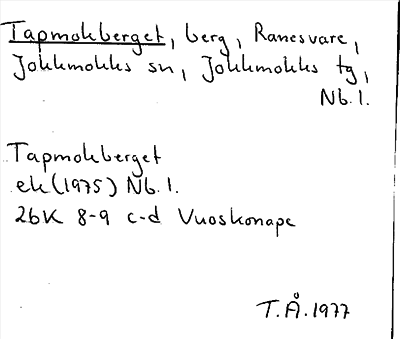 Tapmokberget, berg, Ranesvare,
Jokkmokks sn, Jokkmokks tg,
Nb. l.
Tapmokberget
ek (1975) Nb. l.
26K 8-9 c-d Vuoskonape
T.Å. 1977